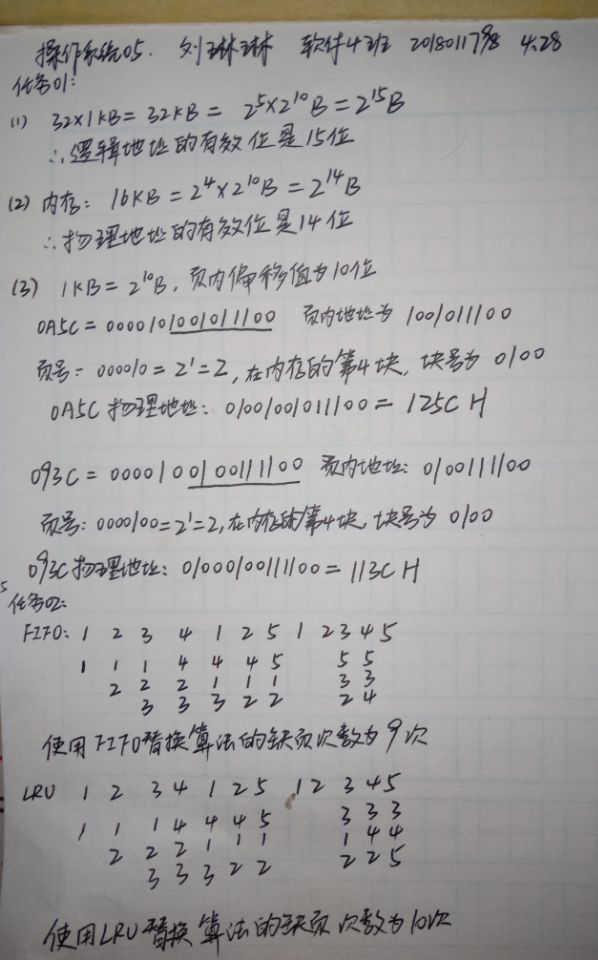 操作系统05. 刘琳琳 软件4班 2018011798 4.28
任务01:
(1) 32×1KB=32KB=2⁵×2¹⁰B=2¹⁵B
∴逻辑地址的有效位是15位
(2) 内存: 16KB=2⁴×2¹⁰B=2¹⁴B
∴物理地址的有效位是14位
(3) 1KB=2¹⁰B,页内偏移值为10位
0A5C=0000101001011100 页内地址为 1001011100
页号=000010=2¹=2,在内存的第4块,块号为0100
0A5C物理地址: 01001001011100=125CH
093C=0000100100111100 页内地址: 0100111100
页号:000010=2¹=2,在内存的第4块,块号为0100
093C物理地址: 01000100111100=113CH
任务02:
FIFO: 1 2 3 4 1 2 5 1 2 3 4 5
1 1 1 4 4 4 5 5 5
2 2 2 1 1 1 3 3
3 3 3 2 2 2 4
使用FIFO替换算法的缺页次数为9次
LRU 1 2 3 4 1 2 5 1 2 3 4 5
1 1 1 4 4 4 5 3 3 3
2 2 2 1 1 1 1 4 4
3 3 3 2 2 2 2 5
使用LRU替换算法的缺页次数为10次